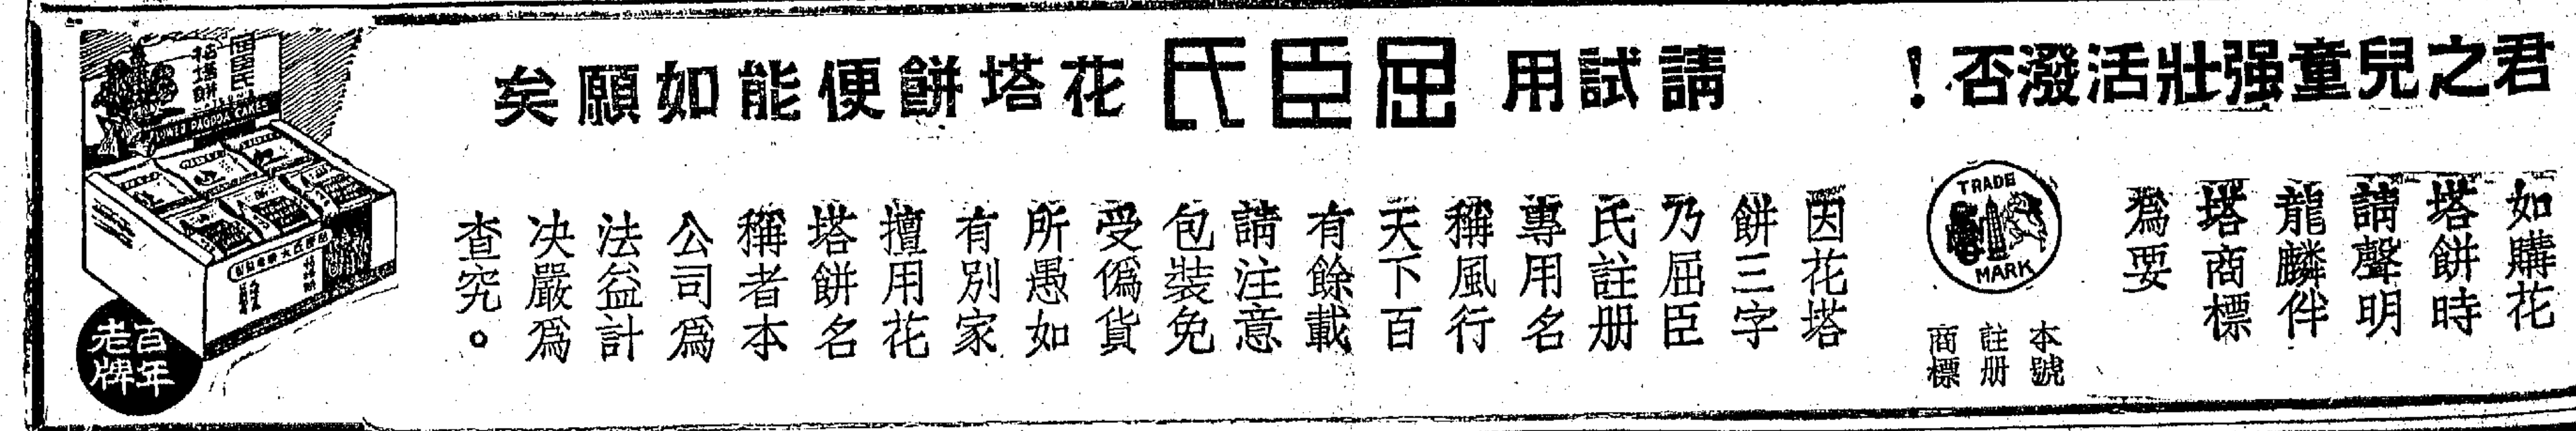 君之兒童强壯活潑否!
請試用屈臣氏花塔餅便能如願矣
如購花
塔餅時
請聲明
龍麟伴
塔商標
爲要
TRADE
MARK
本號
註册
商標
因花塔
餅三字
乃屈臣
氏註册
專用名
稱風行
天下百
有餘載
請注意
包裝免
受僞貨
所愚如
有別家
擅用花
塔餅名
稱者本
公司爲
法益計
决嚴爲
查究。
屈臣氏
花塔餅
百年
老牌